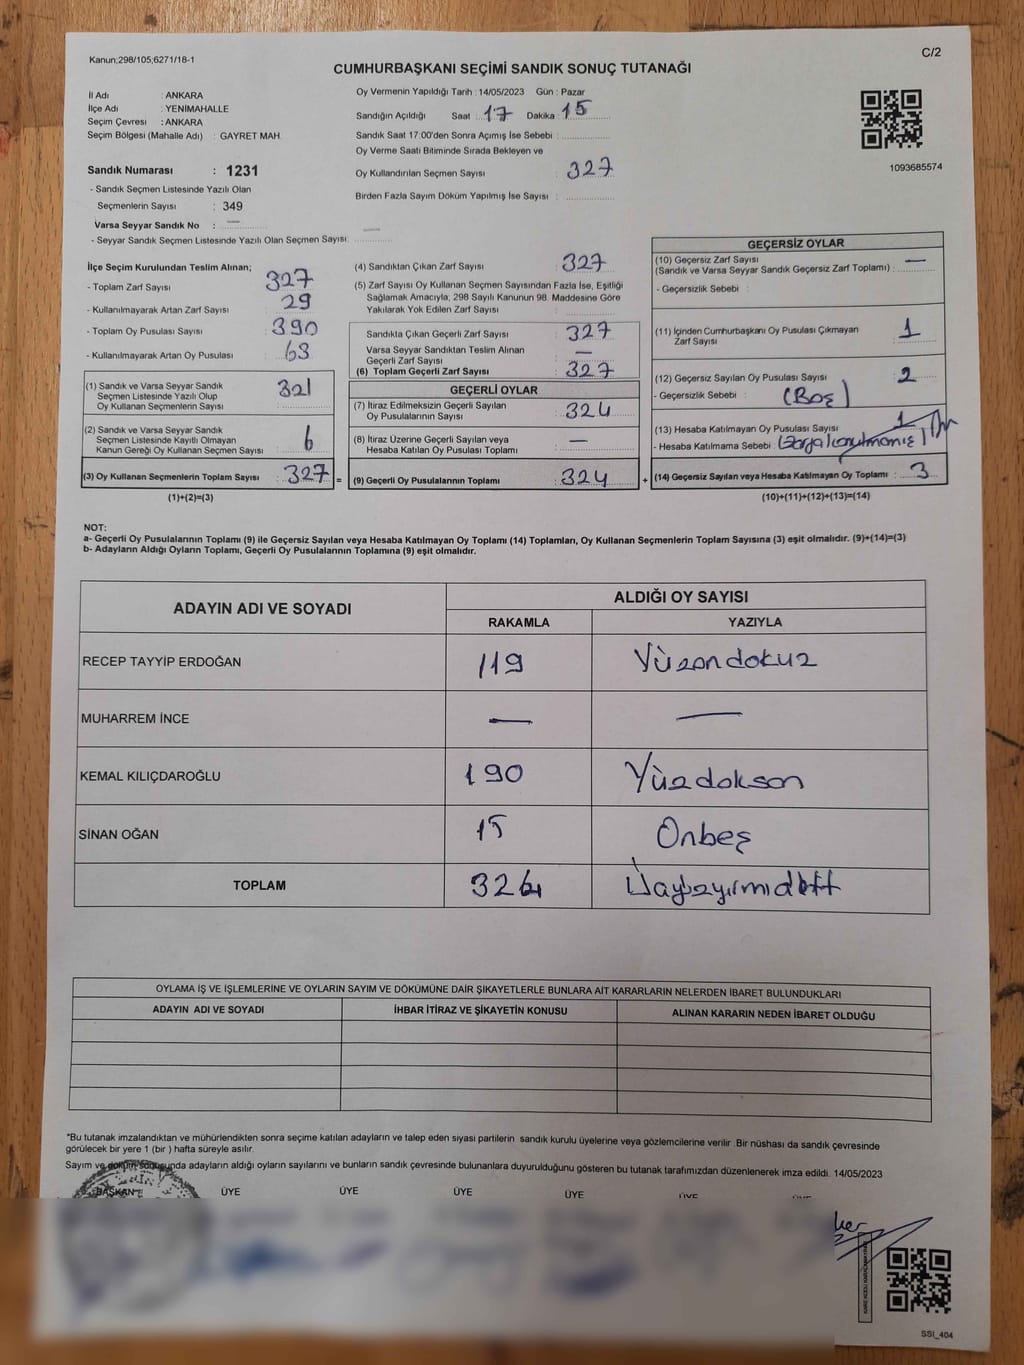 Kanun;298/105;6271/18-1
C/2
CUMHURBAŞKANI SEÇİMİ SANDIK SONUÇ TUTANAĞI
İl Adı : ANKARA
İlçe Adı : YENİMAHALLE
Seçim Çevresi : ANKARA
Seçim Bölgesi (Mahalle Adı) : GAYRET MAH.
Sandık Numarası : 1231
- Sandık Seçmen Listesinde Yazılı Olan
Seçmenlerin Sayısı : 349
Varsa Seyyar Sandık No : —
- Seyyar Sandık Seçmen Listesinde Yazılı Olan Seçmen Sayısı: —
Oy Vermenin Yapıldığı Tarih : 14/05/2023 Gün : Pazar
Sandığın Açıldığı Saat : 17 Dakika : 15
Sandık Saat 17:00'den Sonra Açımış İse Sebebi :
Oy Verme Saati Bitiminde Sırada Bekleyen ve
Oy Kullandırılan Seçmen Sayısı : 327
Birden Fazla Sayım Döküm Yapılmış İse Sayısı :
1093685574
İlçe Seçim Kurulundan Teslim Alınan;
- Toplam Zarf Sayısı : 327
- Kullanılmayarak Artan Zarf Sayısı : 29
- Toplam Oy Pusulası Sayısı : 390
- Kullanılmayarak Artan Oy Pusulası : 63
(1) Sandık ve Varsa Seyyar Sandık
Seçmen Listesinde Yazılı Olup
Oy Kullanan Seçmenlerin Sayısı : 321
(2) Sandık ve Varsa Seyyar Sandık
Seçmen Listesinde Kayıtlı Olmayan
Kanun Gereği Oy Kullanan Seçmen Sayısı : 6
(3) Oy Kullanan Seçmenlerin Toplam Sayısı : 327 =
(1)+(2)=(3)
(4) Sandıktan Çıkan Zarf Sayısı : 327
(5) Zarf Sayısı Oy Kullanan Seçmen Sayısından Fazla İse, Eşitliği
Sağlamak Amacıyla; 298 Sayılı Kanunun 98. Maddesine Göre
Yakılarak Yok Edilen Zarf Sayısı :
Sandıkta Çıkan Geçerli Zarf Sayısı : 327
Varsa Seyyar Sandıktan Teslim Alınan
Geçerli Zarf Sayısı : —
(6) Toplam Geçerli Zarf Sayısı : 327
GEÇERLİ OYLAR
(7) İtiraz Edilmeksizin Geçerli Sayılan
Oy Pusulalarının Sayısı : 324
(8) İtiraz Üzerine Geçerli Sayılan veya
Hesaba Katılan Oy Pusulası Toplamı : —
(9) Geçerli Oy Pusulalarının Toplamı : 324 +
GEÇERSİZ OYLAR
(10) Geçersiz Zarf Sayısı
(Sandık ve Varsa Seyyar Sandık Geçersiz Zarf Toplamı) : —
- Geçersizlik Sebebi :
(11) İçinden Cumhurbaşkanı Oy Pusulası Çıkmayan
Zarf Sayısı : 1
(12) Geçersiz Sayılan Oy Pusulası Sayısı : 2
- Geçersizlik Sebebi : (Boş)
(13) Hesaba Katılmayan Oy Pusulası Sayısı : 1
- Hesaba Katılmama Sebebi
(14) Geçersiz Sayılan veya Hesaba Katılmayan Oy Toplamı : 3
(10)+(11)+(12)+(13)=(14)
NOT:
a- Geçerli Oy Pusulalarının Toplamı (9) ile Geçersiz Sayılan veya Hesaba Katılmayan Oy Toplamı (14) Toplamları, Oy Kullanan Seçmenlerin Toplam Sayısına (3) eşit olmalıdır. (9)+(14)=(3)
b- Adayların Aldığı Oyların Toplamı, Geçerli Oy Pusulalarının Toplamına (9) eşit olmalıdır.
ADAYIN ADI VE SOYADI
ALDIĞI OY SAYISI
RAKAMLA YAZIYLA
RECEP TAYYİP ERDOĞAN 119 Yüzondokuz
MUHARREM İNCE — —
KEMAL KILIÇDAROĞLU 190 Yüzdoksan
SİNAN OĞAN 15 Onbeş
TOPLAM 324 Üçyüzyirmidört
OYLAMA İŞ VE İŞLEMLERİNE VE OYLARIN SAYIM VE DÖKÜMÜNE DAİR ŞİKAYETLERLE BUNLARA AİT KARARLARIN NELERDEN İBARET BULUNDUKLARI
ADAYIN ADI VE SOYADI İHBAR İTİRAZ VE ŞİKAYETİN KONUSU ALINAN KARARIN NEDEN İBARET OLDUĞU
*Bu tutanak imzalandıktan ve mühürlendikten sonra seçime katılan adayların ve talep eden siyasi partilerin sandık kurulu üyelerine veya gözlemcilerine verilir. Bir nüshası da sandık çevresinde
görülecek bir yere 1 (bir ) hafta süreyle asılır.
Sayım ve döküm sonucunda adayların aldığı oyların sayılarını ve bunların sandık çevresinde bulunanlara duyurulduğunu gösteren bu tutanak tarafımızdan düzenlenerek imza edildi. 14/05/2023
BAŞKAN ÜYE ÜYE ÜYE ÜYE ÜYE
SSI_404